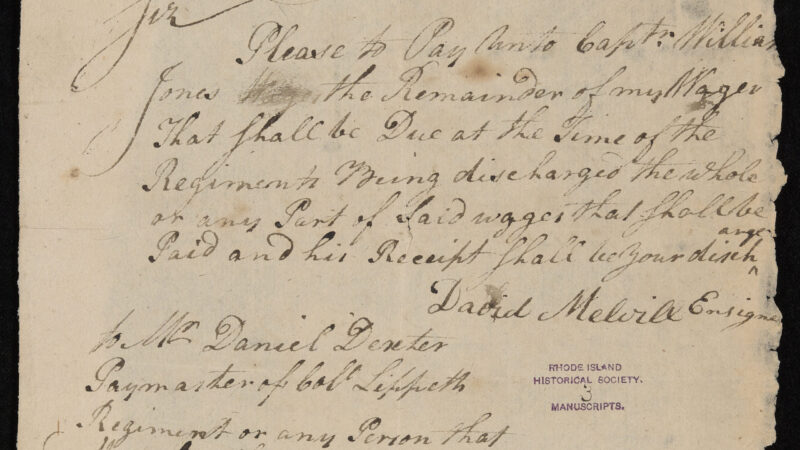 Sir
Please to Pay unto Capt:r Willia
Jones the Remainder of my Wages
That shall be Due at the Time of the
Regiments Being discharged the whole
or any Part of Said wages that shall be
arge
Paid and his Receipt shall be your disch
^
David Melvill Ensigne
to Mr Daniel Dexter
Paymaster of Col:l Lippeth
Regiment or any Person that
RHODE ISLAND
HISTORICAL SOCIETY.
3
MANUSCRIPTS.